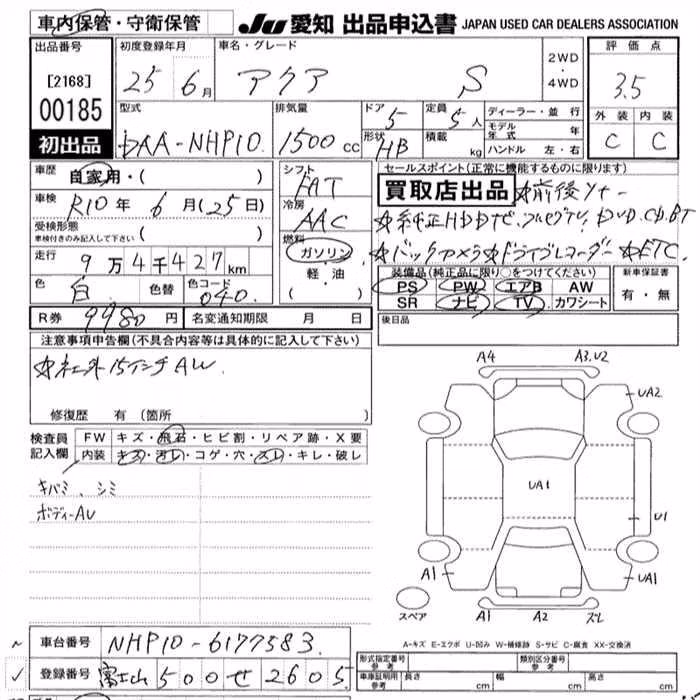 車内保管・守衛保管 JU 愛知 出品申込書 JAPAN USED CAR DEALERS ASSOCIATION
出品番号 初度登録年月 車名・グレード 2WD・4WD 評価点
[2168] 25年 6月 アクア S 3.5
00185 型式 排気量 ドア 5 定員 5人 ディーラー・並行 外装 内装
初出品 DAA-NHP10 1500cc 形状 HB 積載 kg モデル年式 年 C C
ハンドル 左・右
車歴 自家用・( ) シフト FAT セールスポイント(正常に機能するものに限ります)
車検 R10年 6月(25日) 冷房 AAC 買取店出品 ☆前後ソナー
受検形態 車検付きのみ記入して下さい ( ) 燃料 ☆純正HDDナビ、フルセグTV、DVD、CD、BT
走行 9万4千427km ガソリン・軽油 ☆バックカメラ☆ドライブレコーダー☆ETC.
色 白 色替 色コード 040. ・( ) 装備品(純正品に限り○をつけてください) 新車保証書
PS PW エアB AW 有・無
SR ナビ TV カワシート
R券 9980円 名変通知期限 月 日 後日品
注意事項申告欄(不具合内容等は具体的に記入して下さい)
☆社外15インチAW
修復歴 有(箇所 )
検査員記入欄 FW キズ・飛石・ヒビ割・リペア跡・X要
内装 キズ・汚レ・コゲ・穴・スレ・キレ・破レ
キバミ、シミ
ボディーAU
A4 A3.U2
UA2
UA1
U1
A1 UA1
スペア A1 A2 スレ
A-キズ E-エクボ U-凹み W-補修跡 S-サビ C-腐食 XX-交換済
車台番号 NHP10-6177583. 形式指定番号 参考 類別区分番号 参考
登録番号 富士山500せ2605 車庫証明用 参考 長さ cm 幅 cm 高さ cm